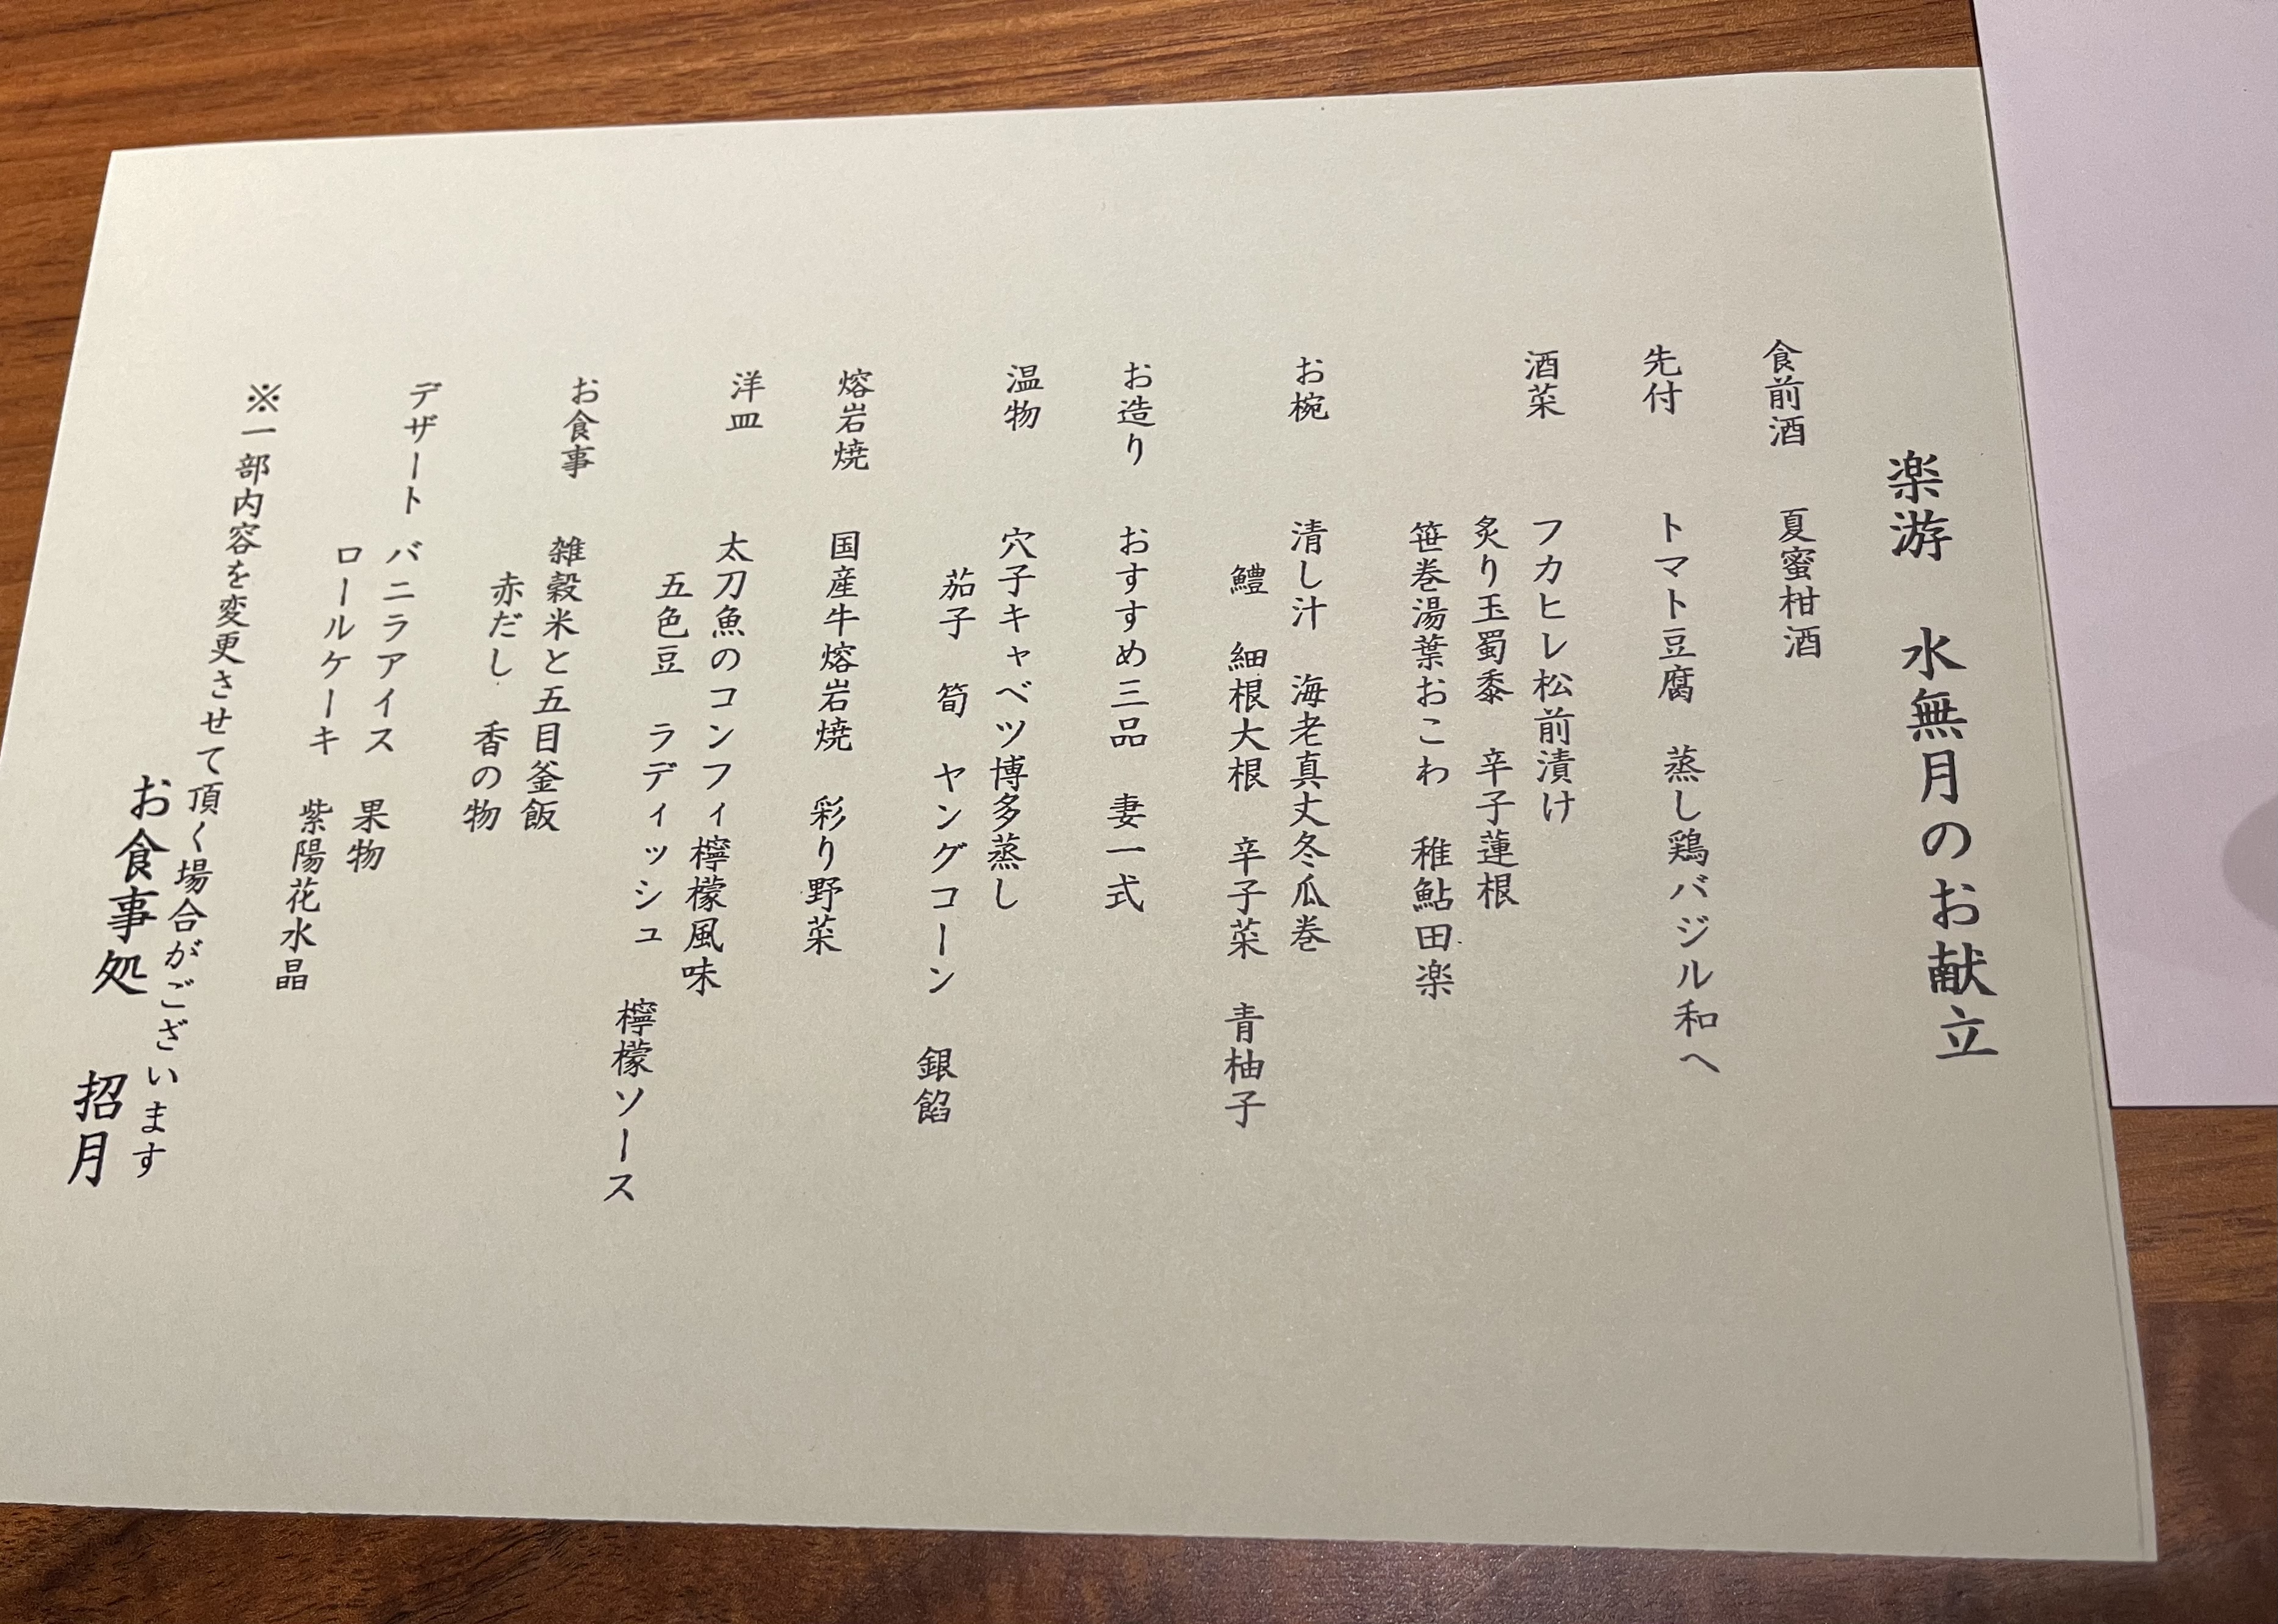 楽游　水無月のお献立
食前酒　夏蜜柑酒
先付　トマト豆腐　蒸し鶏バジル和へ
酒菜　フカヒレ松前漬け
炙り玉蜀黍　辛子蓮根
笹巻湯葉おこわ　稚鮎田楽
お椀　清し汁　海老真丈冬瓜巻
鱧　細根大根　辛子菜　青柚子
お造り　おすすめ三品　妻一式
温物　穴子キャベツ博多蒸し
茄子　筍　ヤングコーン　銀餡
熔岩焼　国産牛熔岩焼　彩り野菜
洋皿　太刀魚のコンフィ檸檬風味
五色豆　ラディッシュ　檸檬ソース
お食事　雑穀米と五目釜飯
赤だし　香の物
デザート　バニラアイス　果物
ロールケーキ　紫陽花水晶
※一部内容を変更させて頂く場合がございます
お食事処　招月